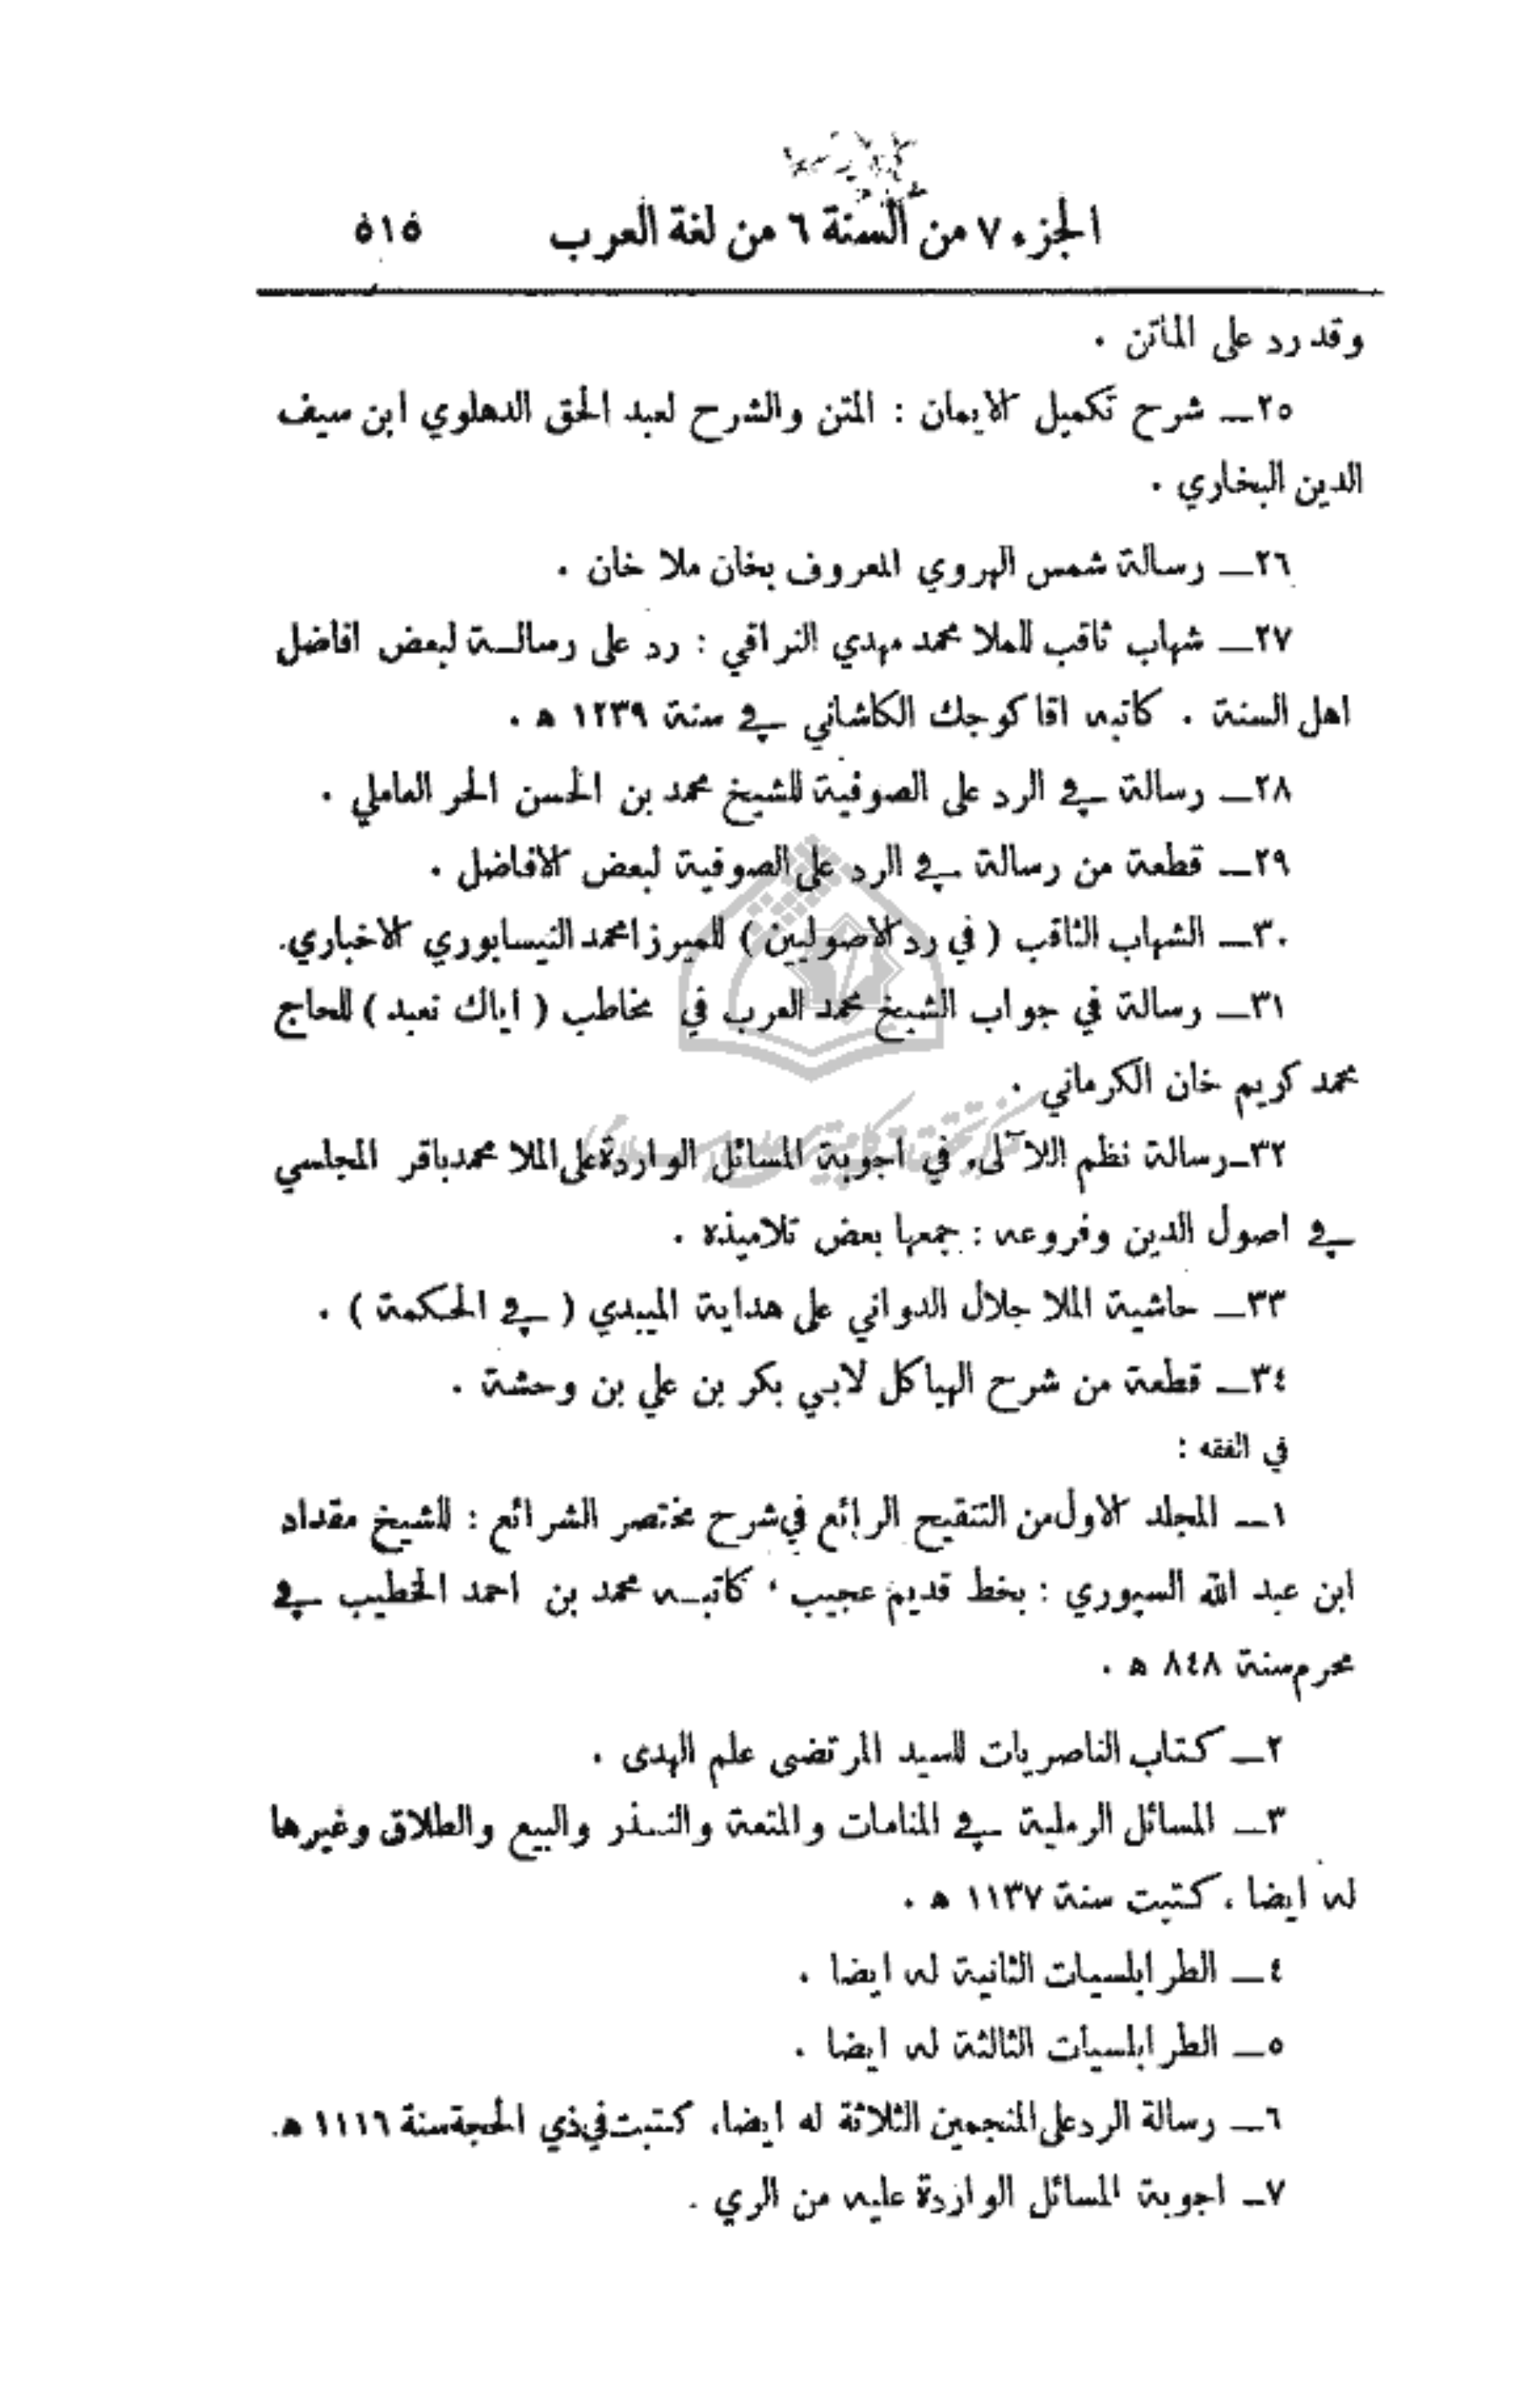 الجزء ٧ من السنة ٦ من لغة العرب ٥١٥
وقد رد على الماتن .
٢٥ــ شرح تكميل الايمان : المتن والشرح لعبد الحق الدهلوي ابن سيف
الدين البخاري .
٢٦ــ رسالة شمس الهروي المعروف بخان ملا خان .
٢٧ــ شهاب ثاقب للملا محمد مهدي النراقي : رد على رسالة لبعض افاضل
اهل السنة . كاتبه اقا كوجك الكاشاني في سنة ١٢٣٩ ه .
٢٨ــ رسالة في الرد على الصوفية للشيخ محمد بن الحسن الحر العاملي .
٢٩ــ قطعة من رسالة في الرد على الصوفية لبعض الافاضل .
٣٠ــ الشهاب الثاقب ( في رد الاصوليين ) للميرزا محمد النيسابوري الاخباري.
٣١ــ رسالة في جواب الشيخ محمد العرب في مخاطب ( اياك نعبد ) للحاج
محمد كريم خان الكرماني .
٣٢ــ رسالة نظم اللآلىء في اجوبة المسائل الواردة على الملا محمدباقر المجلسي
في اصول الدين وفروعه : جمعها بعض تلاميذه .
٣٣ــ حاشية الملا جلال الدواني على هداية الميبدي ( في الحكمة ) .
٣٤ــ قطعة من شرح الهياكل لابي بكر بن علي بن وحشة .
في الفقه :
١ــ المجلد الاول من التنقيح الرائع في شرح مختصر الشرائع : للشيخ مقداد
ابن عبد الله السيوري : بخط قديم عجيب ، كاتبه محمد بن احمد الخطيب في
محرم سنة ٨٤٨ ه .
٢ــ كتاب الناصريات للسيد المرتضى علم الهدى .
٣ــ المسائل الرملية في المنامات والمتعة والنذر والبيع والطلاق وغيرها
له ايضا ، كتبت سنة ١١٣٧ ه .
٤ــ الطرابلسيات الثانية له ايضا .
٥ــ الطرابلسيات الثالثة له ايضا .
٦ــ رسالة الرد على المنجمين الثلاثة له ايضا، كتبت في ذي الحجة سنة ١١١٦ ه.
٧ــ اجوبة المسائل الواردة عليه من الري .